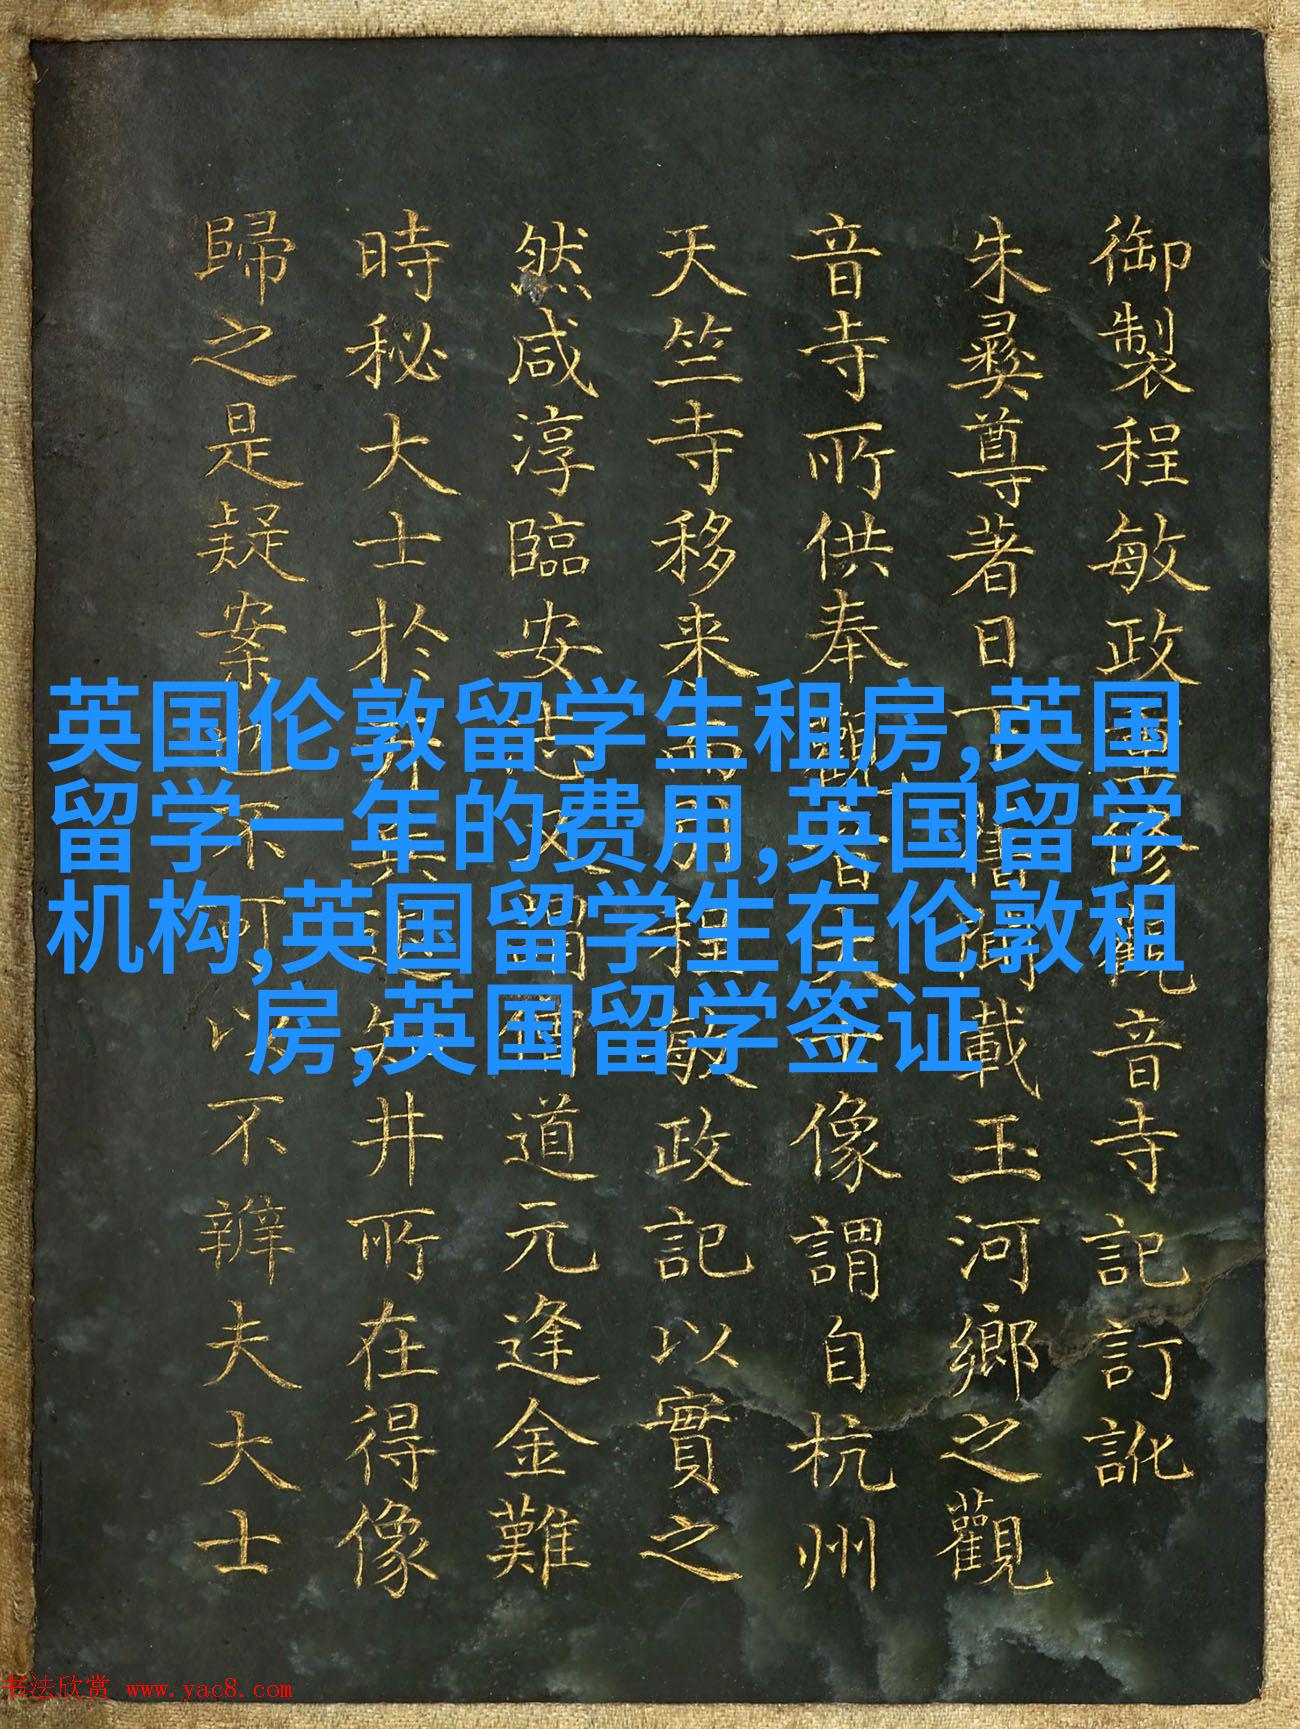 御製程敏政重修觀音寺記訂訛
朱彝尊著日下舊聞載玉河鄉之觀
音寺所供奉觀音大士像謂自杭州
天竺寺移来而用程敏政記以實之
然咸淳臨安志及聞僧道元逢金難
時秘大士於井其近知井所在得像
歸之是疑案也不可以不辨夫大士
英国伦敦留学生租房,英国
留学一年的费用,英国留学
机构,英国留学生在伦敦租
房,英国留学签证
书法欣赏 www.yac8.com